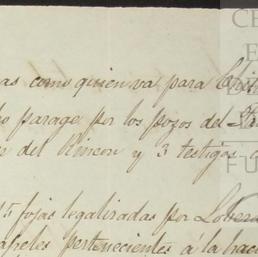 as como quien va para
parage por los pozos del
del Rincon y 3 testigos
15 fojas legalizadas por
papeles pertenecientes á la haci
CE
DE
FU